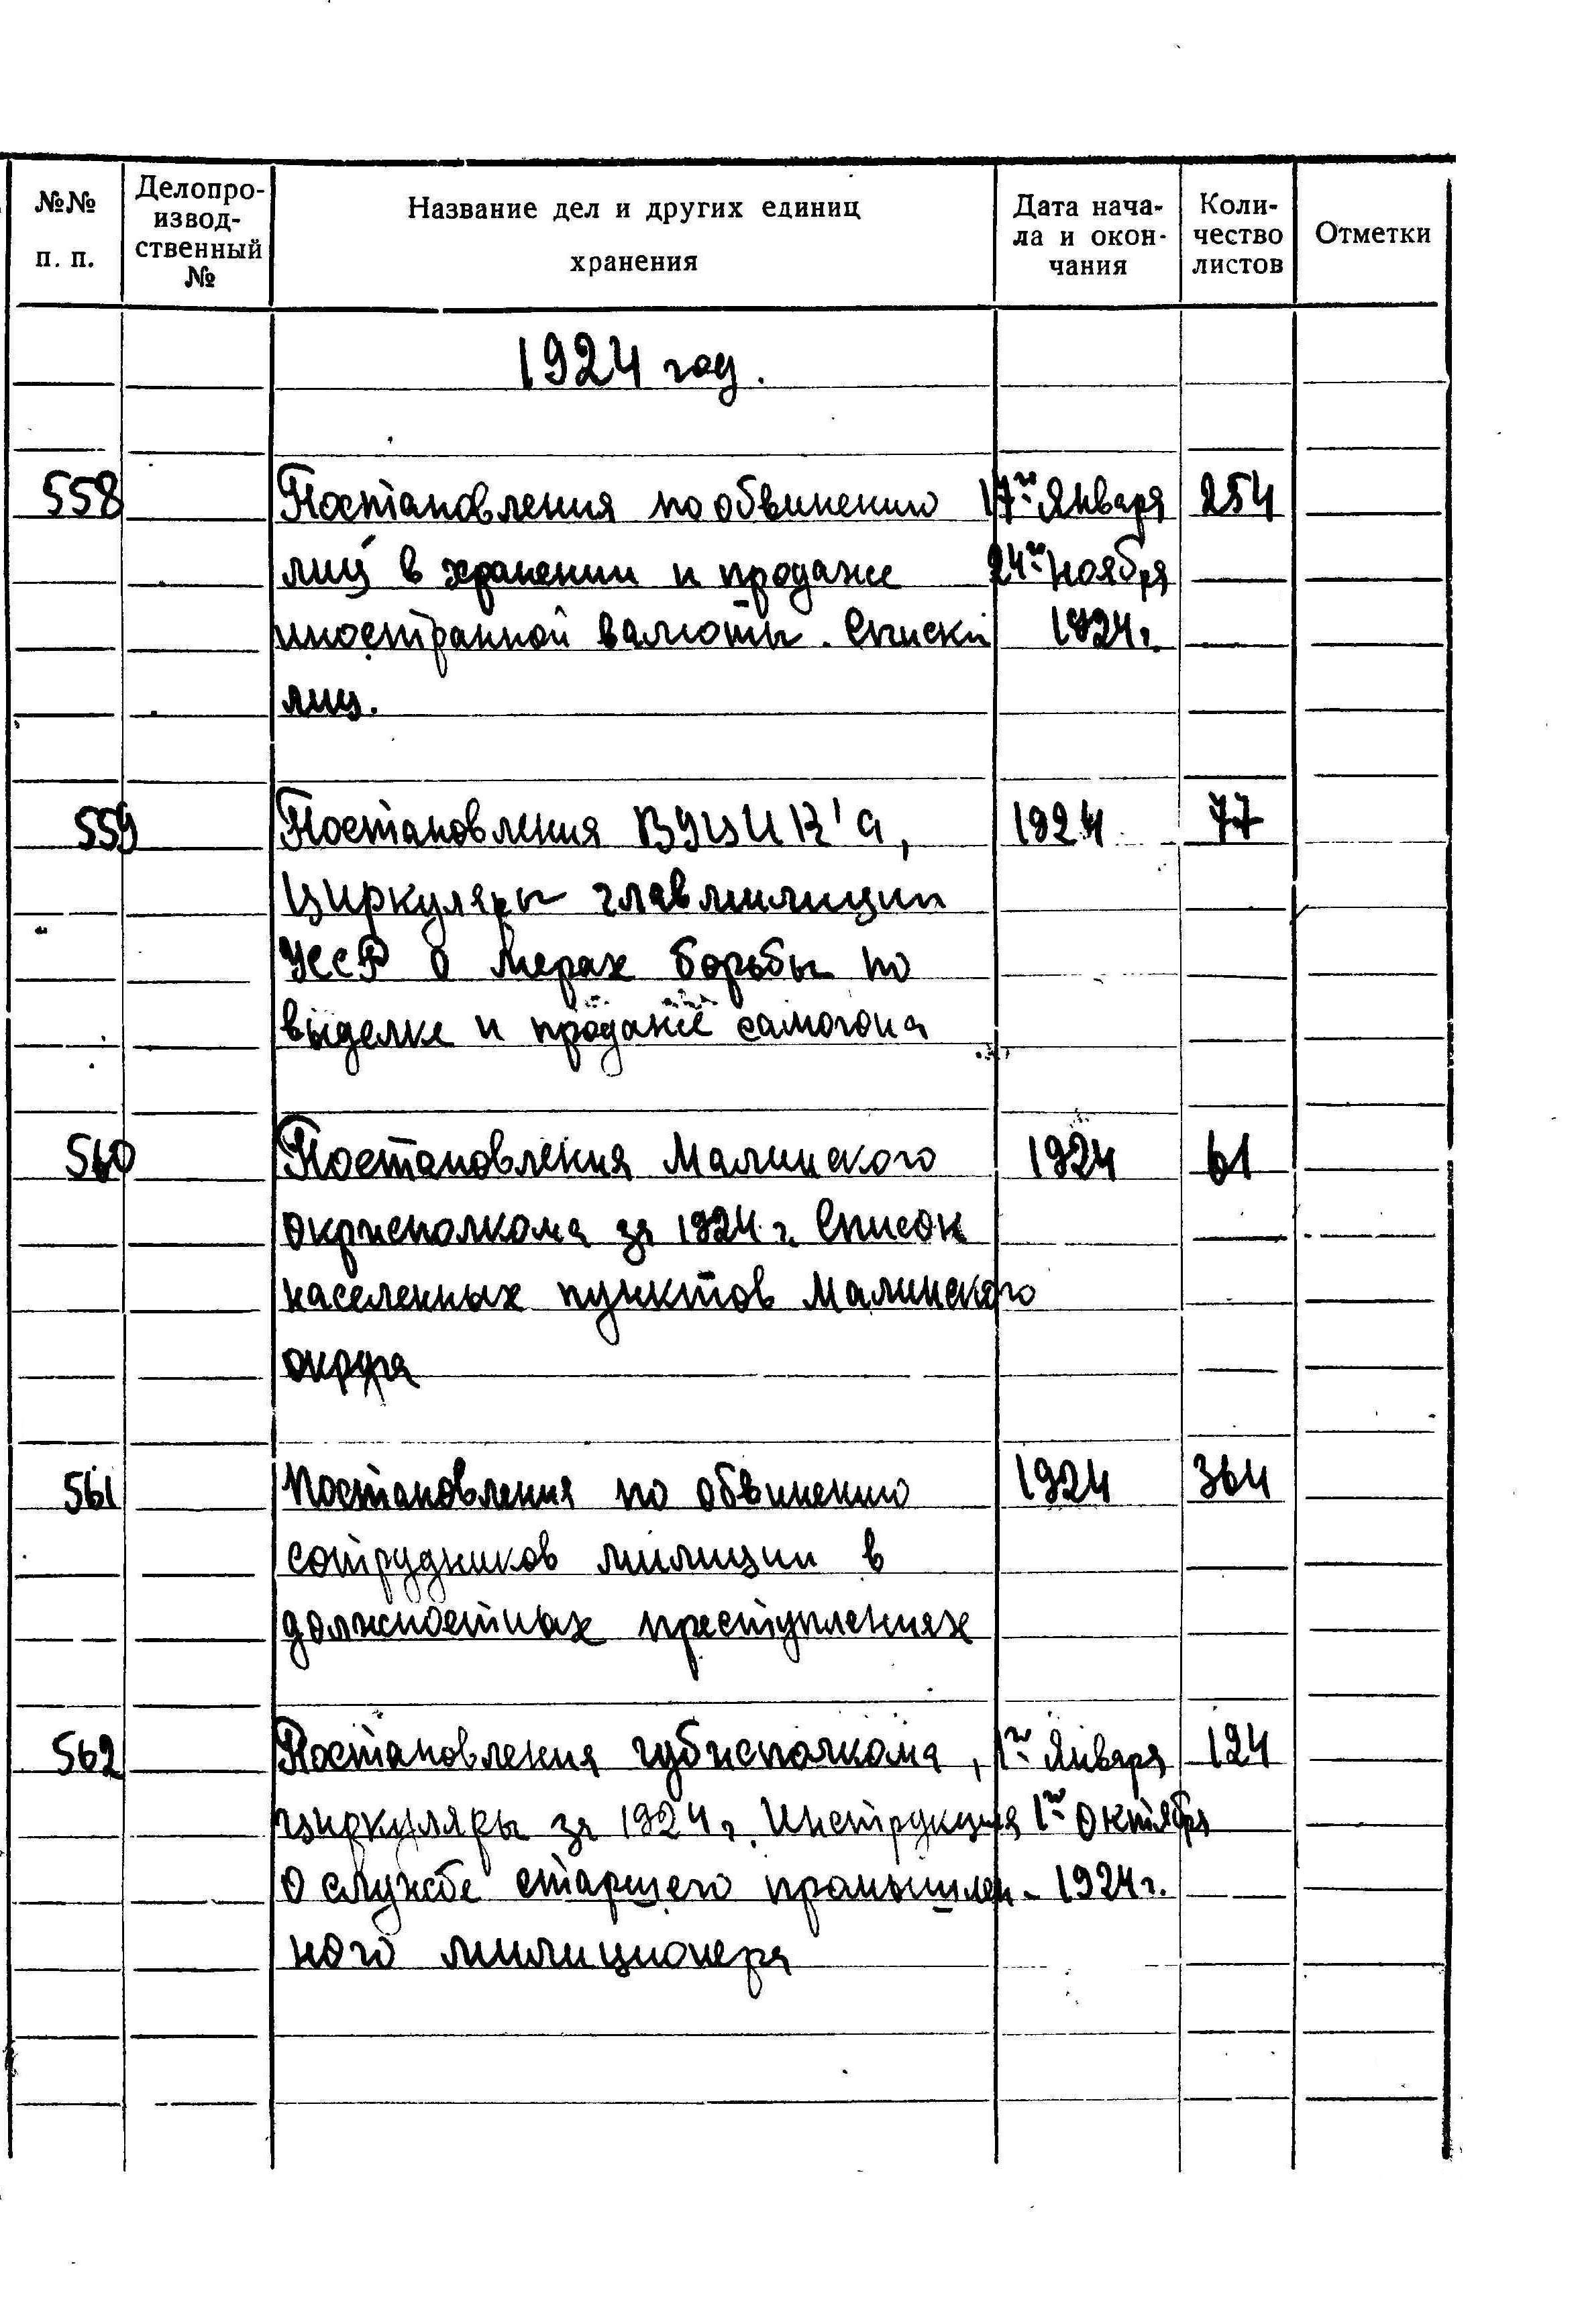 №№ п. п.
Делопро-
извод-
ственный
№
Название дел и других единиц
хранения
Дата нача-
ла и окон-
чания
Коли-
чество
листов
Отметки
1924 год.
558 Постановления по обвинению 17го Января 254
лиц в хранении и продаже 24го Ноября
иностранной валюты. Списки 1924г.
лиц.
559 Постановления ВУЦИК'а, 1924 77
Циркуляры главмилиции
УССР о мерах борьбы по
выделке и продаже самогона
560 Постановления Малинского 1924 61
окрисполкома за 1924 г. Список
населенных пунктов Малинского
округа
561 Постановления по обвинению 1924 364
сотрудников милиции в
должностных преступлениях
562 Постановления губисполкома, 1го Января 124
циркуляры за 1924 г. Инструкция 1го Октября
о службе старшего промышлен- 1924г.
ного милиционера